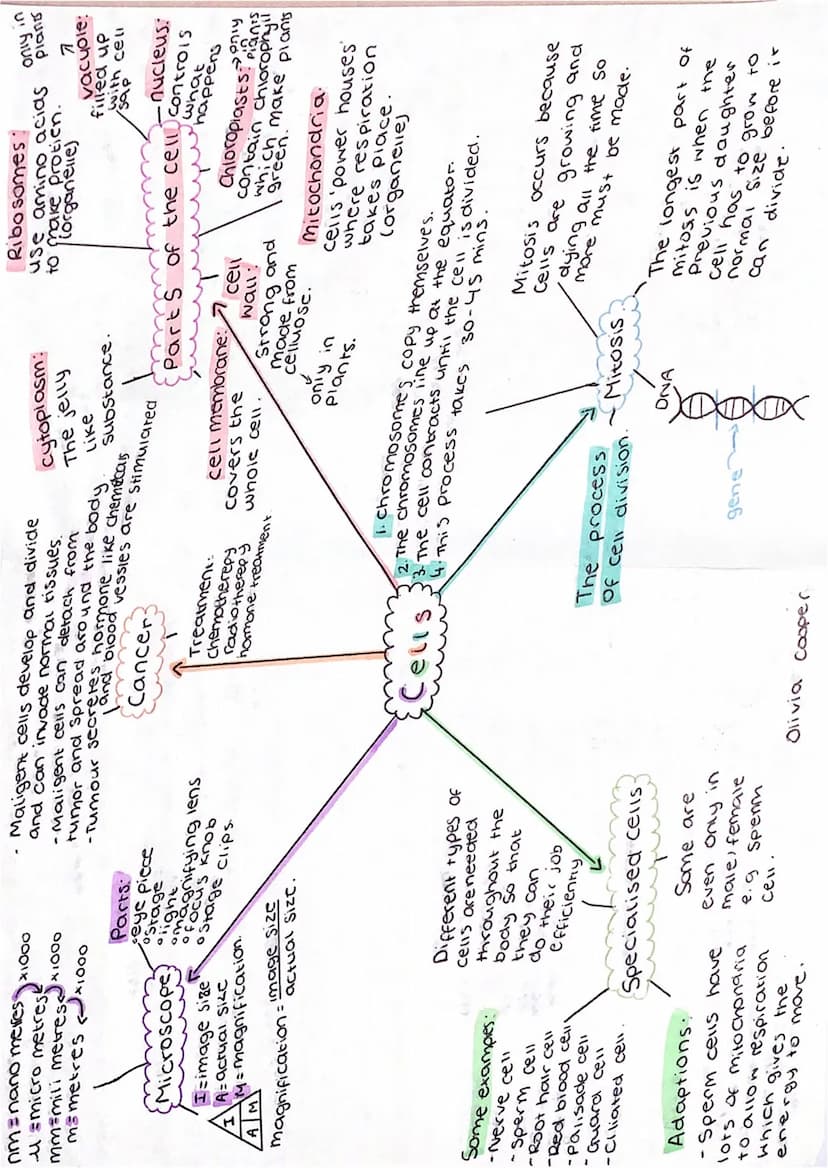 nm = nano metres
x1000
µ = micro metres
x1000
mm = mili metres
x1000
m = metres
Microscope
Parts:
eye piece
stage
light
magnifying lens
focus knob
stage clips.
I
A M
I = image size
A = actual size
M = magnification.
magnification = image size
actual size.
- Maligent cells develop and divide
and can invade normal tissues.
- Maligent cells can detach from
tumor and spread around the body.
- Tumour secretes hormone like chemicals
and blood vessles are stimulated
Cancer
Treatment:
chemotherepy
radiotherepy
hormone treatment.
Parts of the cell
cytoplasm:
The jelly
like
substance.
Ribosomes:
use amino acids
to make protien.
(organelle)
only in
plants
vacuole:
filled up
with cell
sap
nucleus:
controls
what
happens
Chloroplasts: → only
in plants
contain chlorophyll
which make plants
green.
Mitochondria:
cells 'power houses'
where respiration
takes place.
(organelle)
cell
wall:
strong and
made from
cellulose.
only in
plants.
cell membrane:
covers the
whole cell.
Cells
1. Chromosomes copy themselves.
2. The chromosomes line up at the equator.
3. The cell contracts until the cell is divided.
4. This process takes 30-45 mins.
Mitosis
The process
of cell division.
Mitosis occurs because
cells are growing and
dying all the time so
more must be made.
The longest part of
mitosis is when the
previous daughter
cell has to grow to
normal size before it
can divide.
DNA
gene
Specialised Cells
Different types of
cells are needed
throughout the
body so that
they can
do their job
efficiently
Some examples:
- Nerve cell
- sperm cell
- Root hair cell
- Red blood cell
- Palisade cell
- Guard cell
- Ciliated cell.
Adaptions:
- Sperm cells have
lots of mitochondria
to allow respiration
which gives the
energy to move.
Some are
even only in
male/female
e.g sperm
cell.
Olivia Cooper